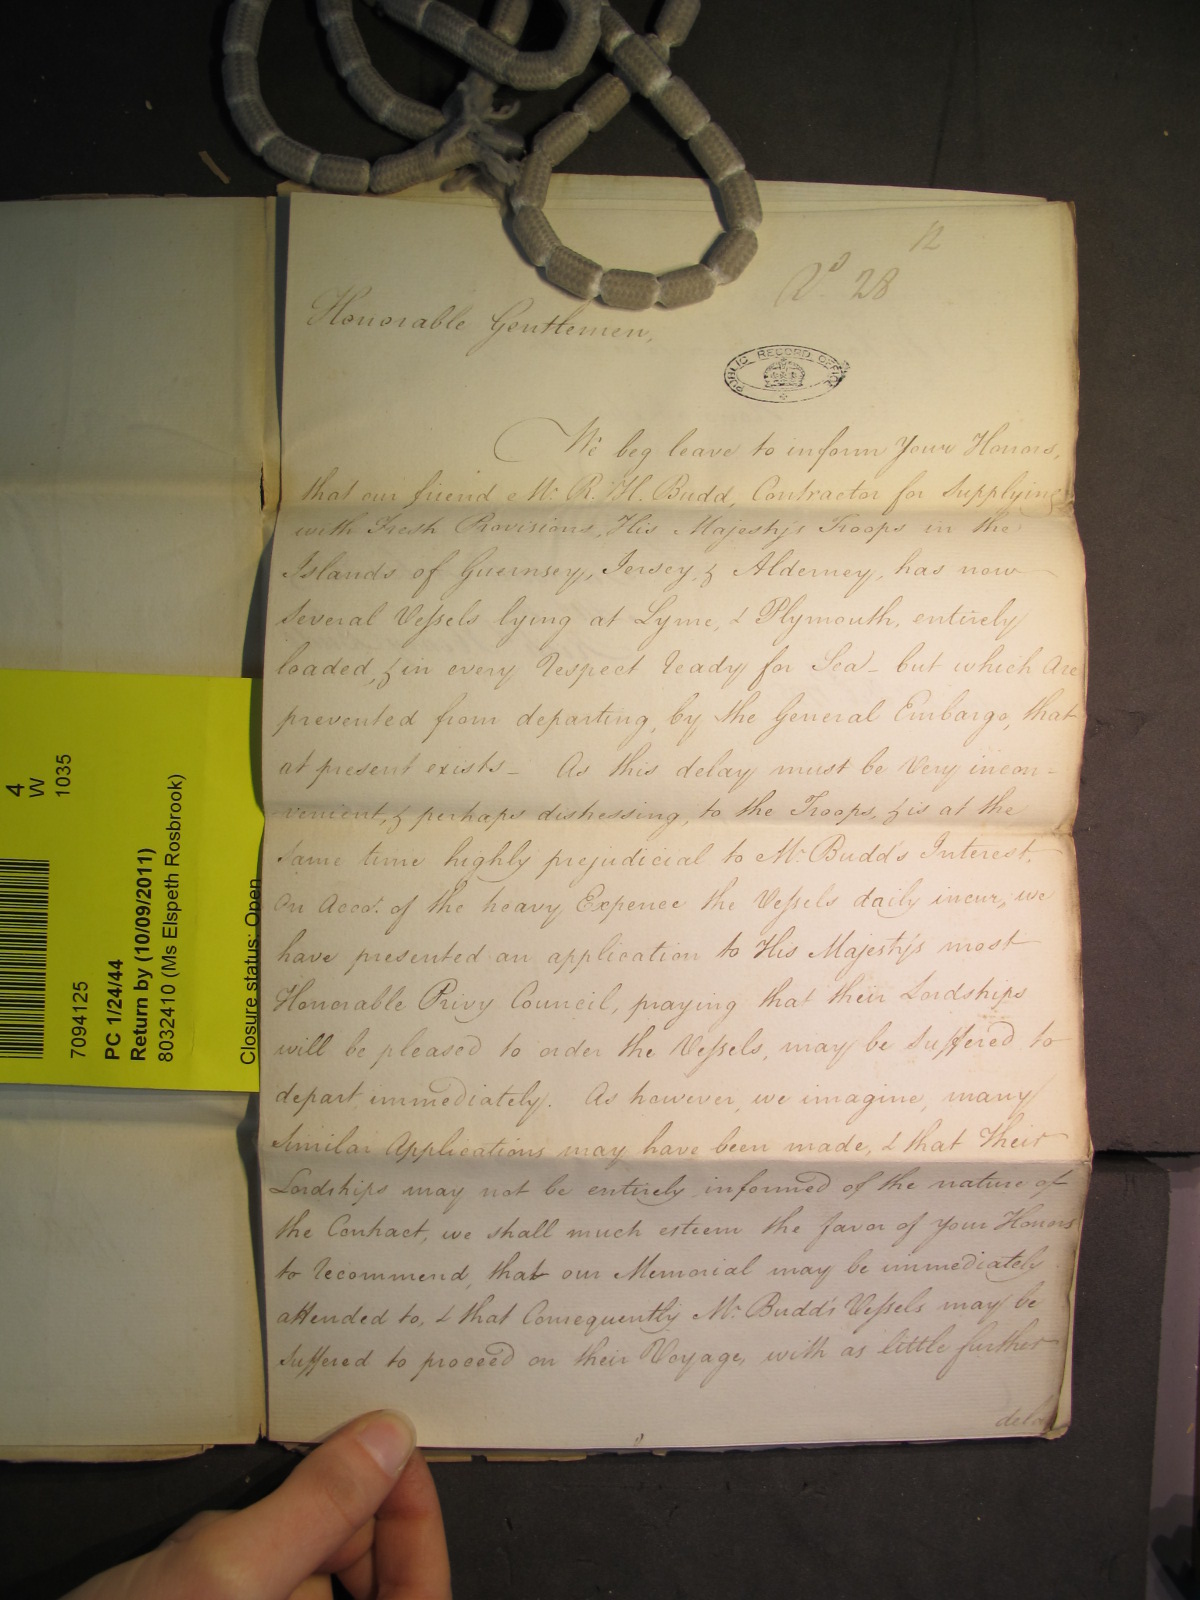 12
No. 28
Honorable Gentlemen,
PUBLIC RECORD OFFICE
We beg leave to inform Your Honors,
that our friend Mr. R. H. Budd, Contractor for Supplying
with Fresh Provisions, His Majesty's Troops in the
Islands of Guernsey, Jersey, & Alderney, has now
Several Vessels lying at Lyme, & Plymouth, entirely
loaded, & in every Respect Ready for Sea - but which Are
prevented from departing, by the General Embargo, that
at present exists - As this delay must be Very incon-
venient, & perhaps distressing, to the Troops, & is at the
same time highly prejudicial to Mr. Budd's Interest,
On Accot. of the heavy Expence the Vessels daily incur, we
have presented an application to His Majesty's most
Honorable Privy Council, praying that their Lordships
will be pleased to order the Vessels, may be Suffered to
depart immediately. As however, we imagine, many
Similar Applications may have been made, & that Their
Lordships may not be entirely informed of the nature of
the Contract, we shall much esteem the favor of your Honors
to Recommend, that our Memorial may be immediately
attended to, & that Consequently Mr. Budd's Vessels may be
Suffered to proceed on their Voyage, with as little further
delay
4
W
1035
7094125
PC 1/24/44
Return by (10/09/2011)
8032410 (Ms Elspeth Rosbrook)
Closure status: Open